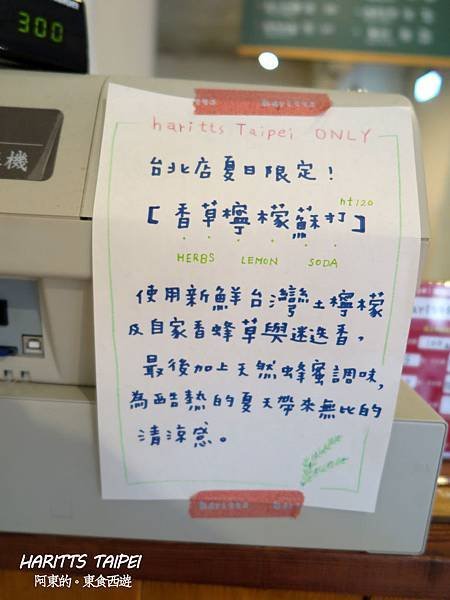 300
機
haritts
haritts Taipei ONLY
台北店夏日限定！
nt120
[香草檸檬蘇打]
HERBS LEMON SODA
使用新鮮台灣土檸檬
及自家香蜂草與迷迭香，
最後加上天然蜂蜜調味，
為酷熱的夏天帶來無比的
清涼感。
haritts
HARITTS TAIPEI
阿東的。東食西遊